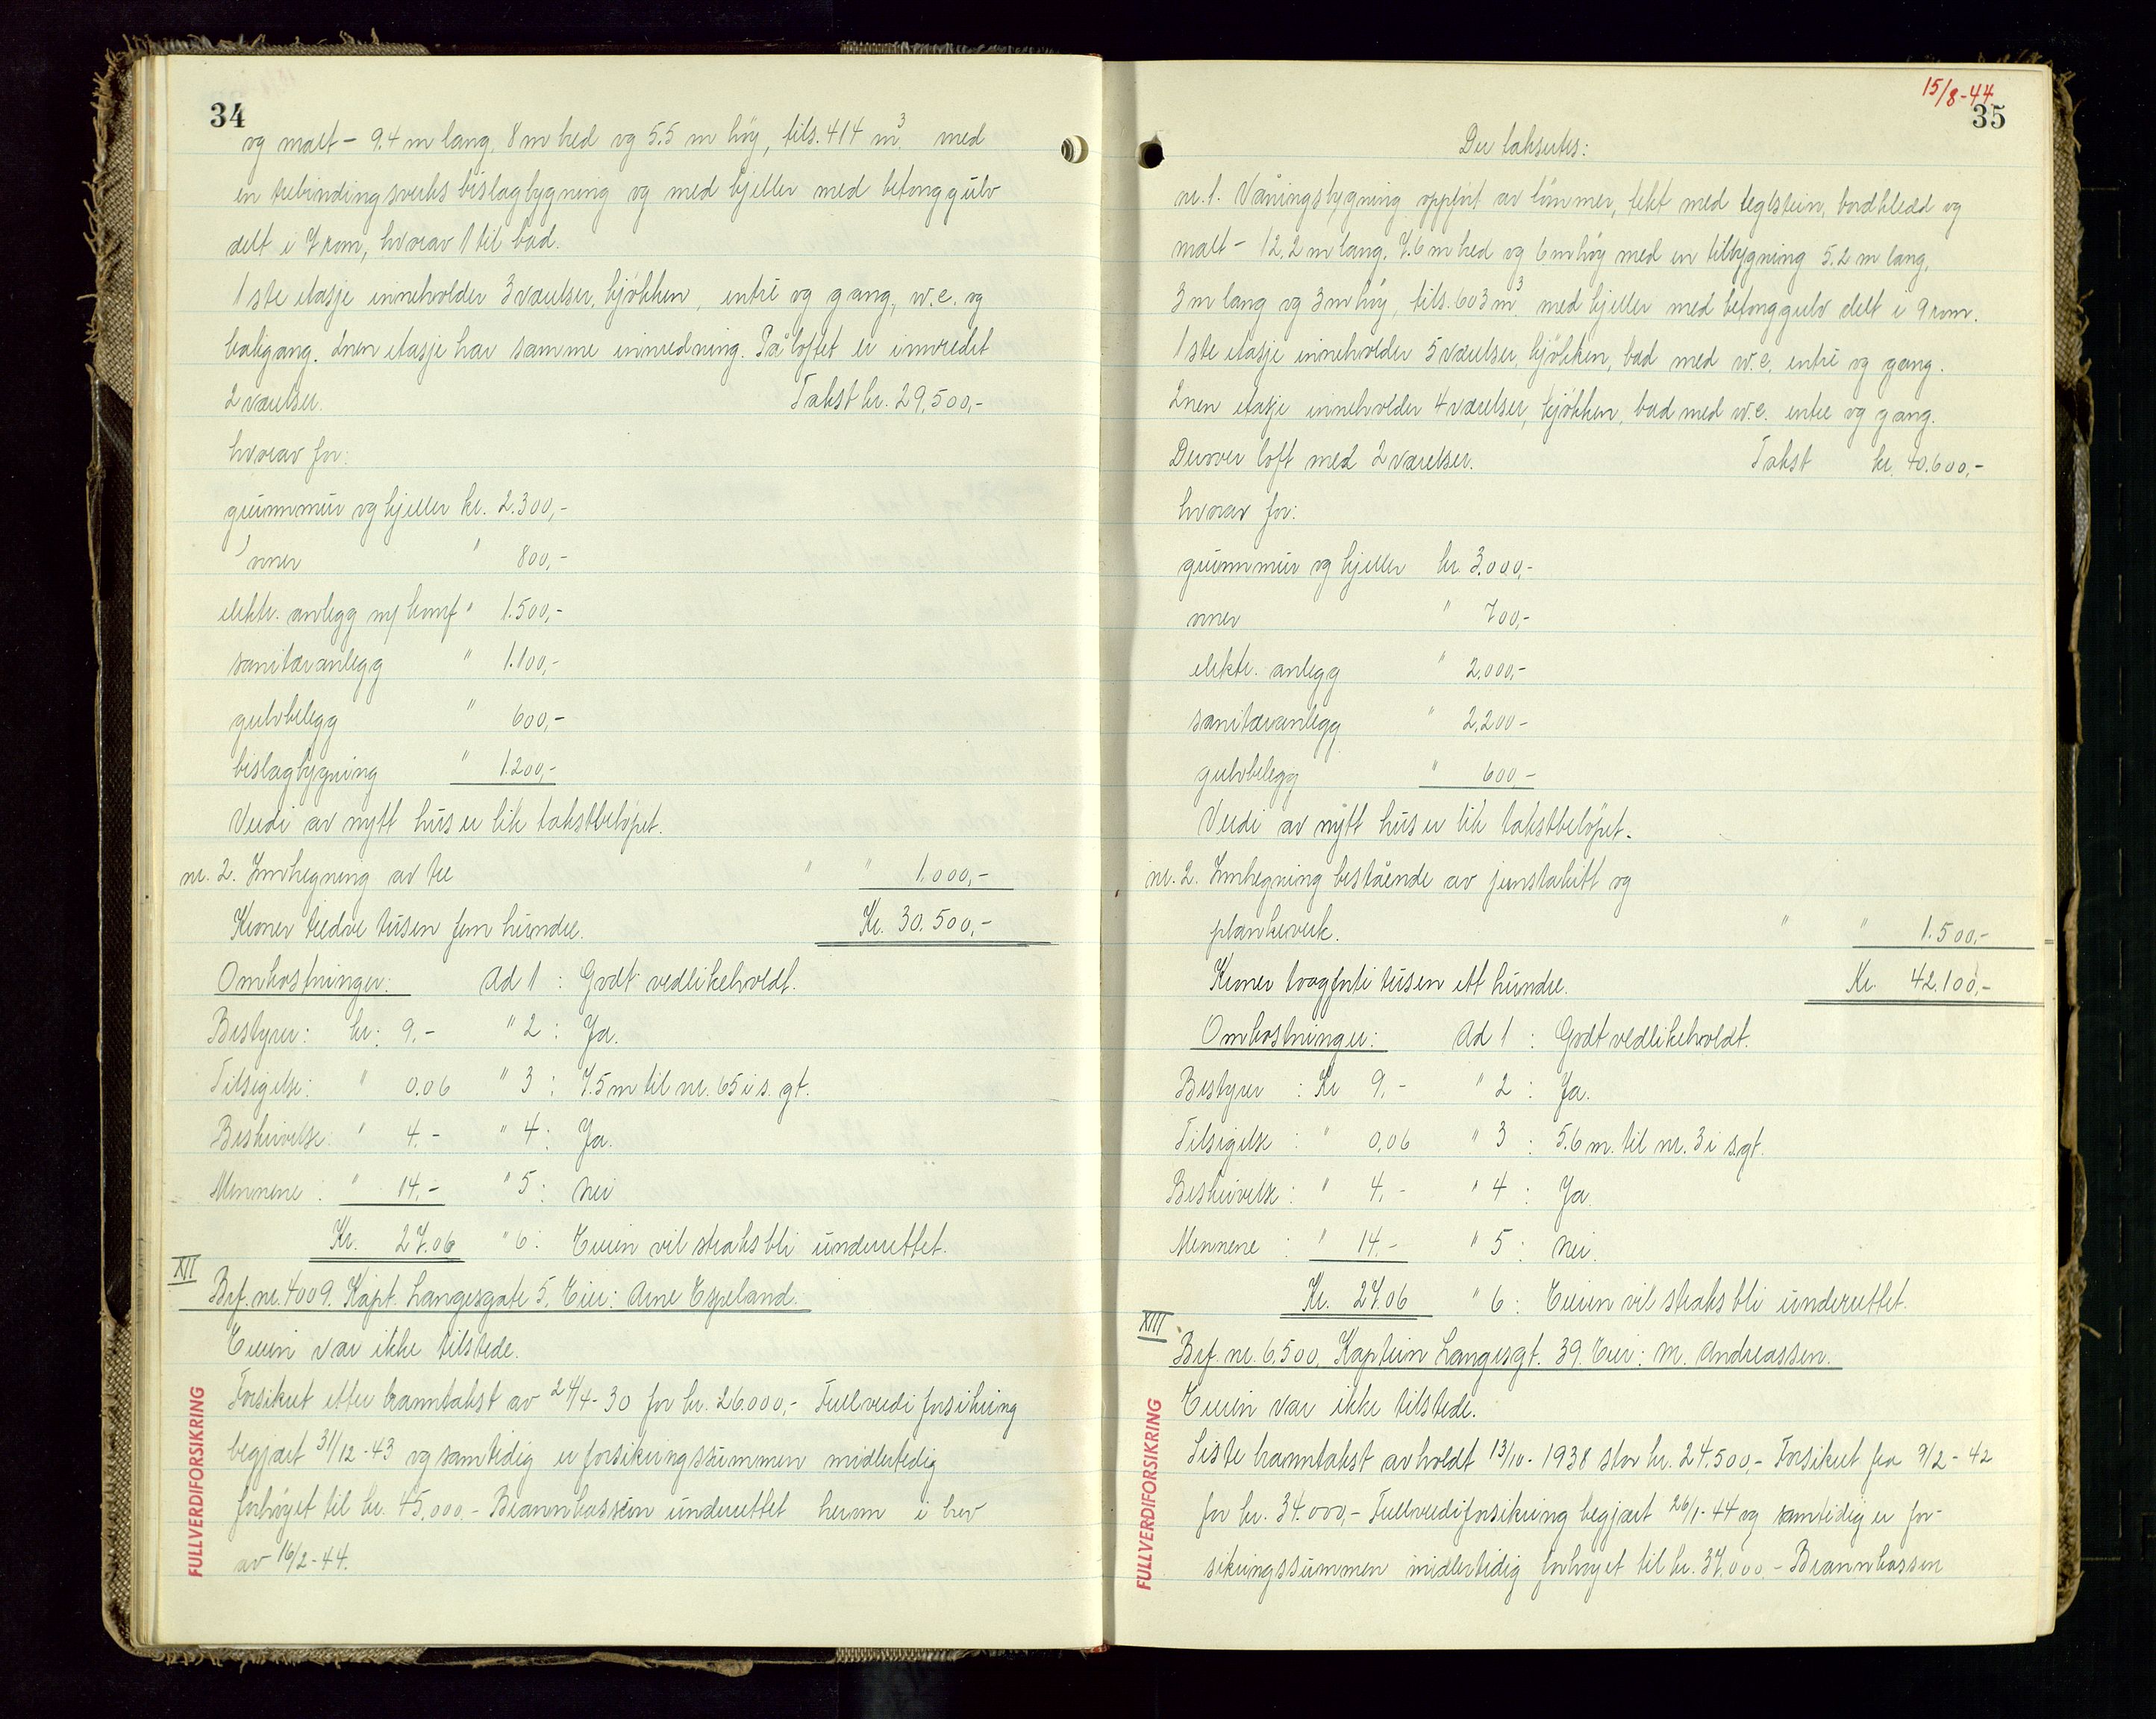 34
og malt - 9.4 m lang, 8 m bred og 5.5 m høy, tils. 414 m³. med
en trebindingsverks bislagbygning og med kjeller med betonggulv
delt i 7 rom, hvorav 1 til bad.
1 ste etasje inneholder 3 værelser, kjøkken, entré og gang, w.c. og
bakgang. 2nen etasje har samme innredning. På loftet er innredet
2 værelser. Takst kr. 29,500,-
hvorav for:
grunnmur og kjeller kr. 2.300,-
ovner " 800,-
elektr. anlegg m/ komf " 1.500,-
sanitæranlegg " 1.100,-
gulvbelegg " 600,-
bislagbygning " 1.200,-
Verdi av nytt hus er lik takstbeløpet.
nr. 2. Innhegning av tre " " 1.000,-
Kroner tredve tusen fem hundre. Kr. 30.500,-
Omkostninger: Ad 1 : Godt vedlikeholdt.
Bestyrer: kr: 9.- " 2 : Ja.
Tilsigelse: " 0.06 " 3 : 7.5 m til nr. 65 i s. gt.
Beskrivelse: " 4.- " 4 : Ja.
Mennene : " 14.- " 5 : nei
Kr. 27.06 " 6 : Eieren vil straks bli underrettet.
XII
Brf. nr. 4009. Kapt. Langesgate 5. Eier: Arne Espeland.
Eieren var ikke tilstede.
Forsikret etter branntakst av 24/4-30 for kr. 26.000,- Fullverdiforsikring
begjært 31/12-43 og samtidig er forsikringssummen midlertidig
forhøyet til kr. 45.000,- Brannkassen underrettet herom i brev
av 16/2-44.
FULLVERDIFORSIKRING
15/8-44
35
Der takseres:
nr. 1. Våningsbygning oppført av tømmer, tekt med teglstein, bordkledd og
malt - 12.2 m lang, 7.6 m bred og 6 m høy med en tilbygning 5.2 m lang,
3 m lang og 3 m høy, tils. 603 m³. med kjeller med betonggulv delt i 9 rom.
1 ste etasje inneholder 5 værelser, kjøkken, bad med w.c. entré og gang.
2nen etasje inneholder 4 værelser, kjøkken, bad med w.c. entre og gang.
Derover loft med 2 værelser. Takst kr. 40.600,-
hvorav for:
grunnmur og kjeller kr. 3.000,-
ovner " 700,-
elektr. anlegg " 2.000,-
sanitæranlegg " 2.200-
gulvbelegg " 600,-
Verdi av nytt hus er lik takstbeløpet.
nr. 2. Innhegning bestående av jernstakitt og
plankeverk. " " 1.500,-
Kroner toogførti tusen ett hundre. Kr. 42.100,-
Omkostninger: Ad 1 : Godt vedlikeholdt.
Bestyrer : Kr 9.- " 2 : Ja.
Tilsigelse : " 0,06 " 3 : 5.6 m. til nr. 3 i s.gt.
Beskrivelse : " 4.- " 4 : Ja
Mennene : " 14.- " 5 : nei.
Kr. 27.06 " 6 : Eieren vil straks bli underrettet.
XIII
Brf. nr. 6.500, Kaptein Langesgt. 39. Eier: M. Andreassen.
Eieren var ikke tilstede.
Siste branntakst avholdt 13/10-1938 stor kr. 24.500,- Forsikret fra 9/2-42
for kr. 34.000,- Fullverdiforsikring begjært 26/1-44 og samtidig er for-
sikringssummen midlertidig forhøyet til kr. 37.000.- Brannkassen
FULLVERDIFORSIKRING